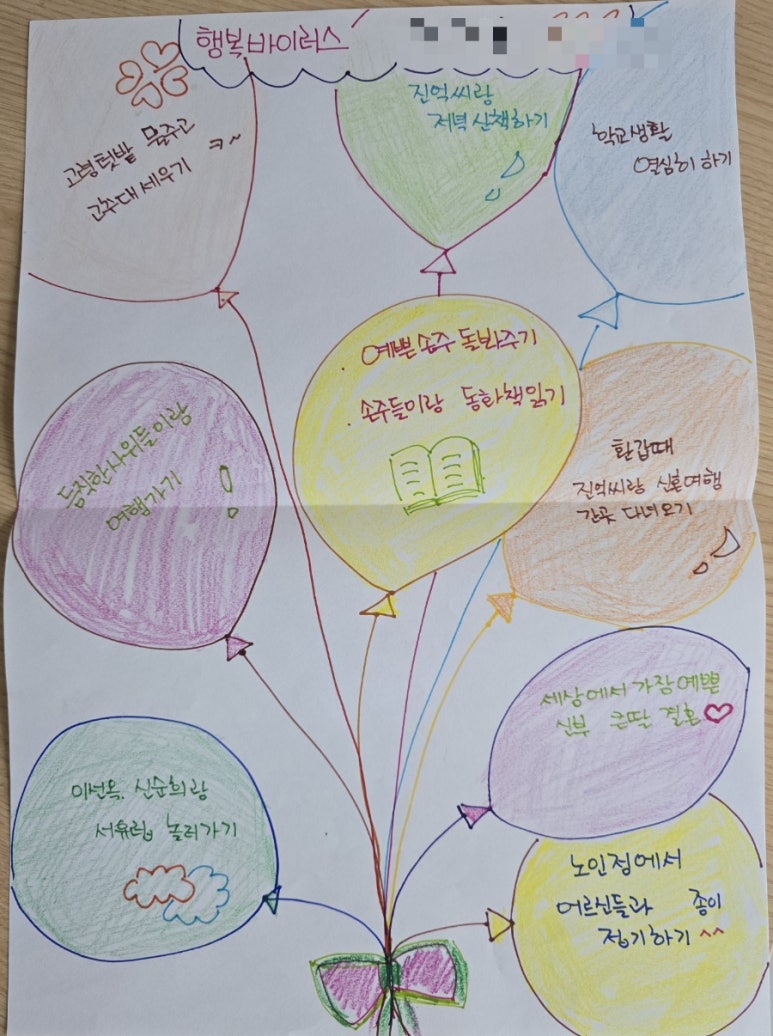 행복바이러스
고령텃밭 물주고
고추대 세우기 ㅋ~
진억씨랑
저녁 산책하기
학교생활
열심히 하기
예쁜 손주 돌봐주기
손주들이랑 동화책읽기
듬직한 사위들이랑
여행가기
환갑때
진억씨랑 신혼여행
간곳 다녀오기
세상에서 가장 예쁜
신부 큰딸 결혼
이선옥, 신순희랑
서유럽 놀러가기
노인정에서
어르신들과 종이
접기하기 ^^